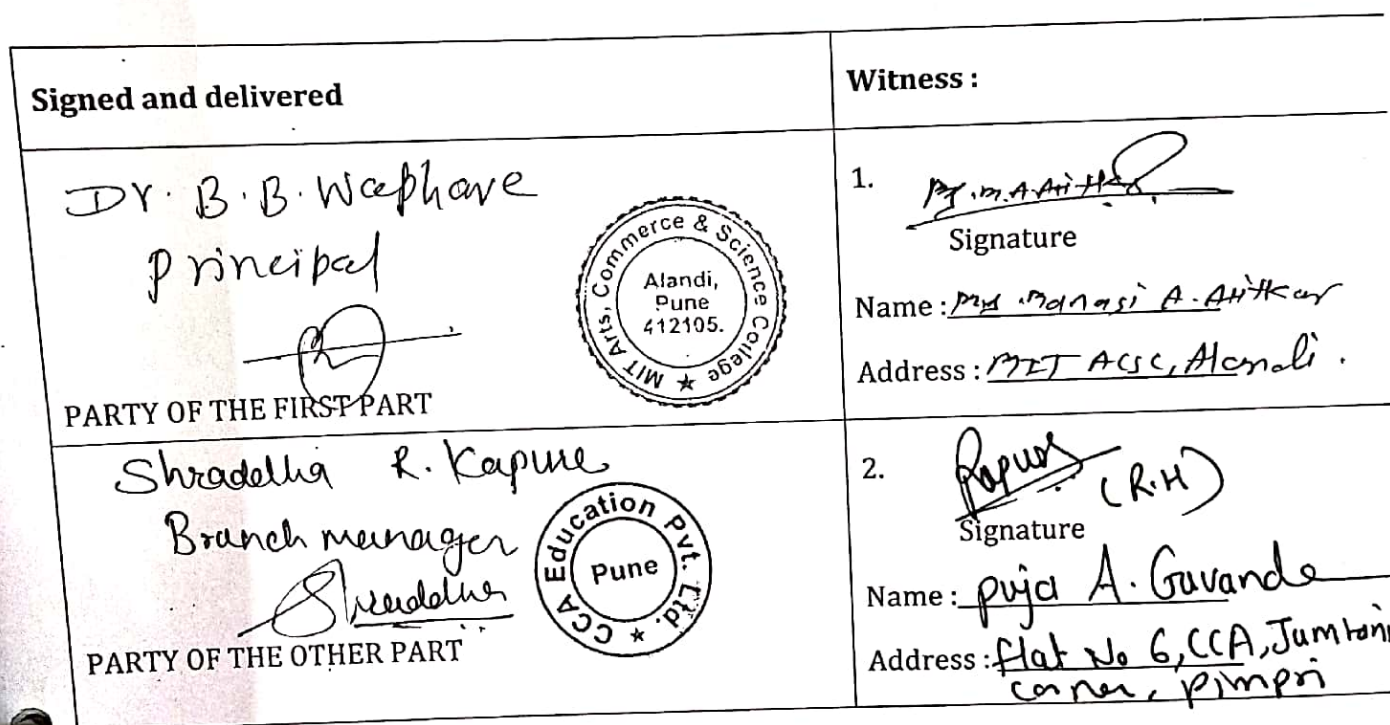 Signed and delivered
Witness :
Dr. B. B. Waphare
Principal
MIT Arts, Commerce & Science College ★
Alandi,
Pune
412105.
PARTY OF THE FIRST PART
1.
Signature
Name : Manasi A. Atitkar
Address : MIT ACSC, Alandi.
Shraddha R. Kapure
Branch manager
Shraddha
CCA Education Pvt. Ltd. ★
Pune
PARTY OF THE OTHER PART
2.
(R.H)
Signature
Name : Puja A. Gavande
Address : flat No 6, CCA, Jumtani
corner, Pimpri